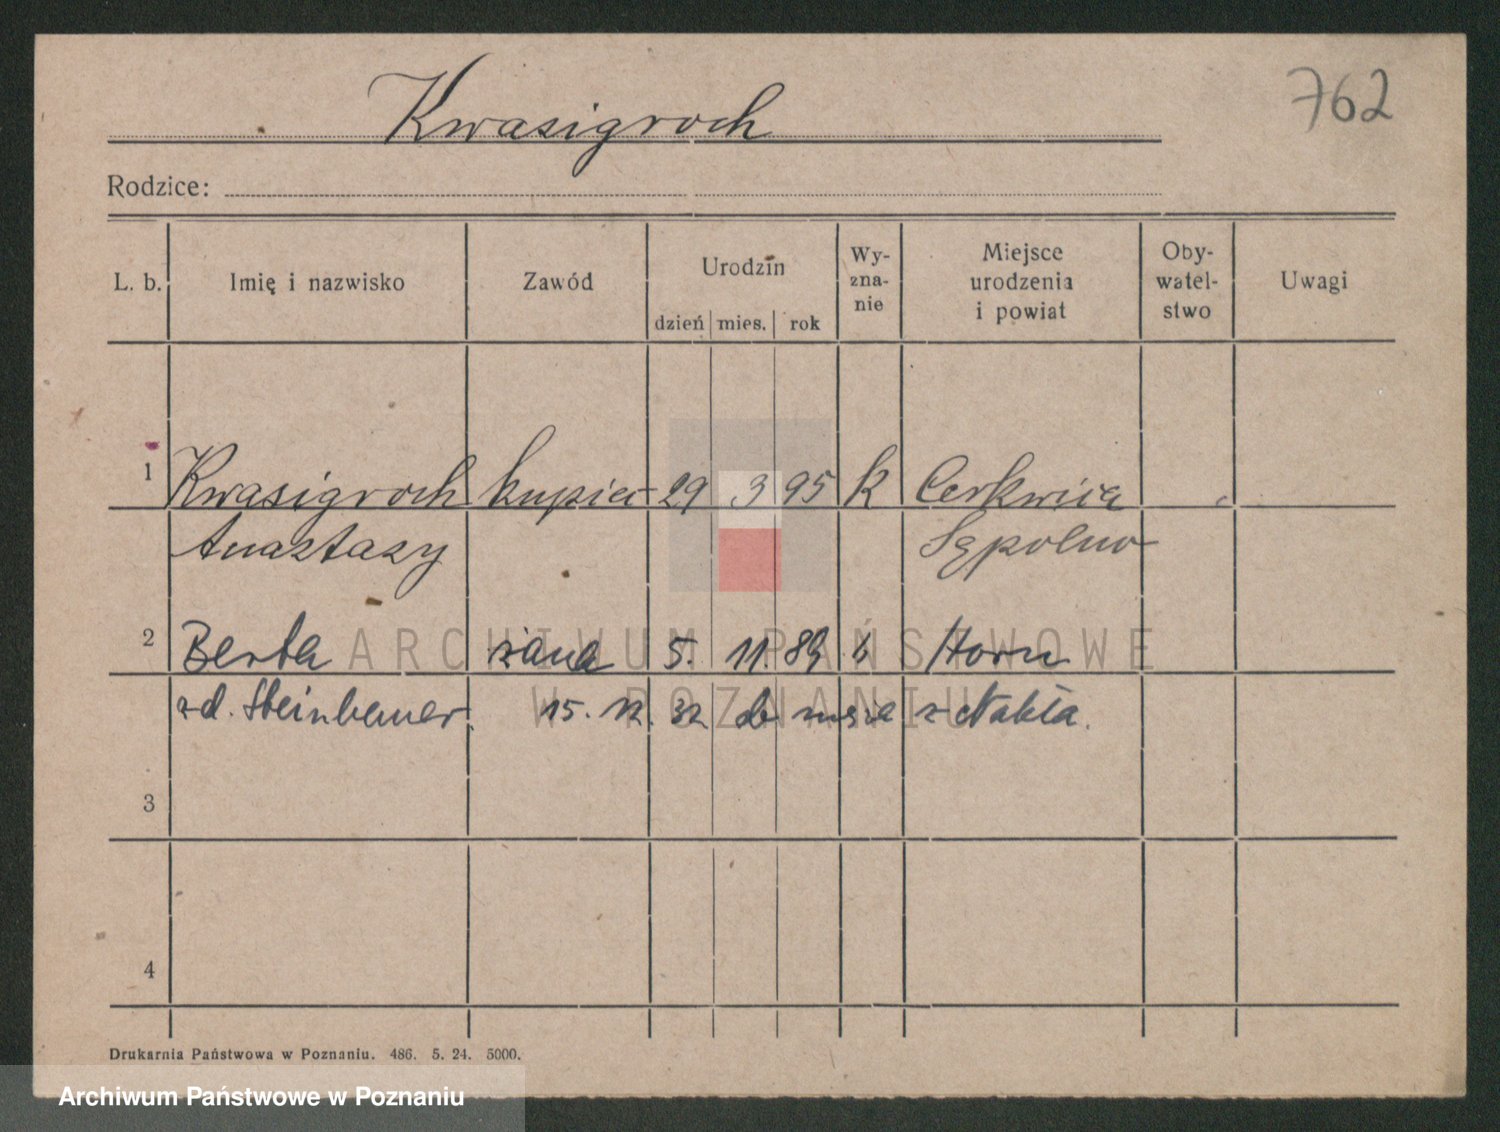 Kwasigroch
762
Rodzice:
L. b. Imię i nazwisko Zawód Urodzin dzień mies. rok Wy-zna-nie Miejsce urodzenia i powiat Oby-watel-stwo Uwagi
1 Kwasigroch kupiec 29 3 95 k Cerkwica
Anastazy Sępolno
2 Berta żona 5. 11. 89 Horn
zd. Steinbauer 15. 12. 32 do męża z Nakła.
3
4
Drukarnia Państwowa w Poznaniu. 486. 5. 24. 5000.
ARCHIWUM PAŃSTWOWE
W POZNANIU
Archiwum Państwowe w Poznaniu